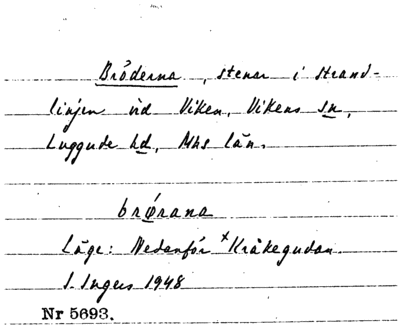 Bröderna, stenar i strand-
linjen vid Viken, Vikens sn,
Luggude hd, Mhs län.
brørana
Läge: Nedanför ˣKråkegudan.
I. Ingers 1948
Nr 5693.